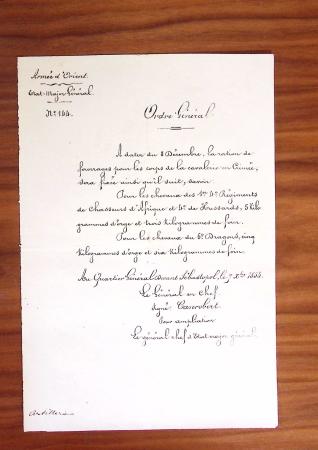 Armée d'Orient.
Etat-Major Général.
N° 144.
Ordre Général.
A dater du 8 Décembre, la ration de
fourrages pour les corps de la cavalerie en Crimée,
sera fixée ainsi qu'il suit, savoir:
Pour les chevaux des 1er 4e Régiments
de Chasseurs d'Afrique et 4e de Houssards, 5 kilo
grammes d'orge et trois kilogrammes de foin.
Pour les chevaux du 6e Dragons, cinq
kilogrammes d'orge et six kilogrammes de foin.
Au Quartier Général devant Sébastopol, le 7 Xbre 1854.
Le Général en Chef
Signé: Canrobert
Pour ampliation
Le général chef d'Etat major général